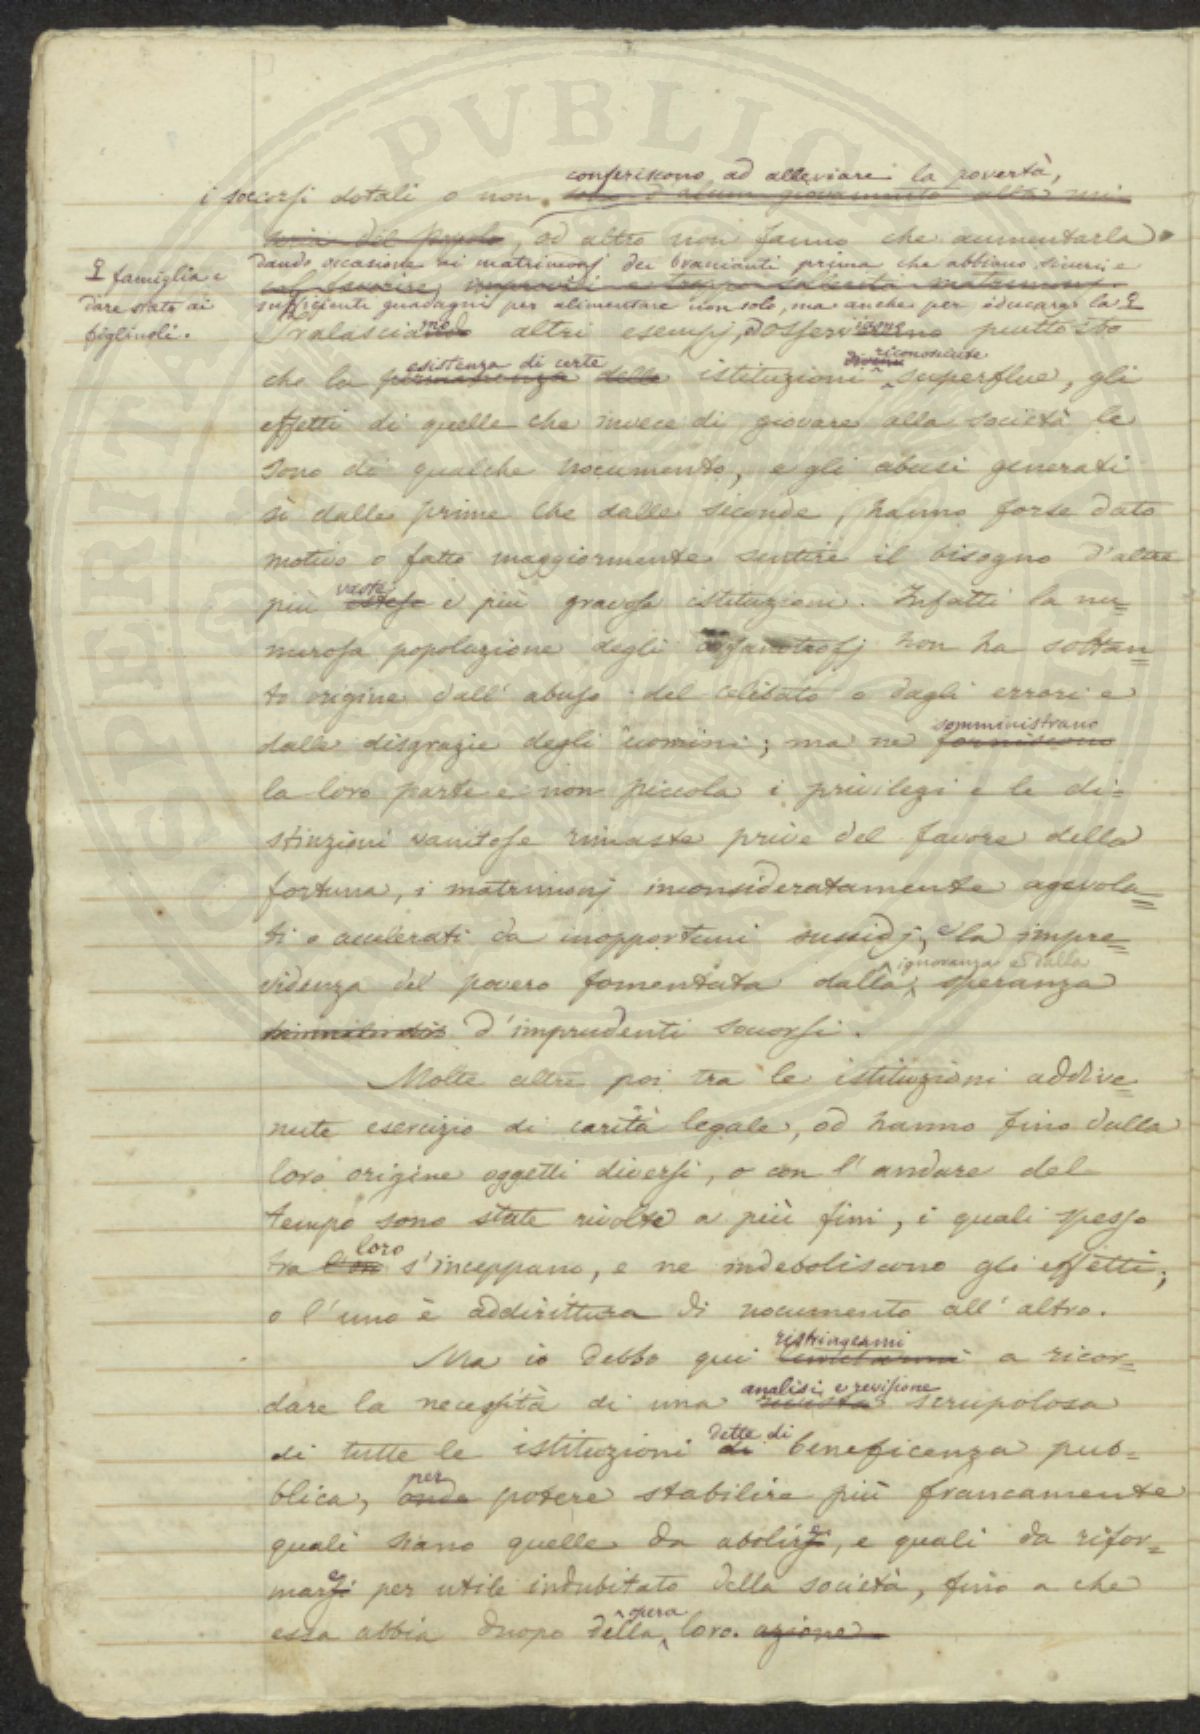 PVBLICA
conferiscono ad alleviare la povertà,
i soccorsi dotali o non sono d'alcun giovamento alla mi-
seria del popolo, od altro non fanno che aumentarla
dando occasione ai matrimonj dei braccianti prima che abbiano sicuri e
sufficienti guadagni per alimentare non solo, ma anche per educare la ♀
♀ famiglia e
dare stato ai
figliuoli.
Tralasciando altri esempj, osserviamo piuttosto
esistenza di certe riconosciute
che la permanenza delle istituzioni superflue, gli
effetti di quelle che invece di giovare alla società le
sono di qualche nocumento, e gli abusi generati
sì dalle prime che dalle seconde, hanno forse dato
motivo o fatto maggiormente sentire il bisogno d'altre
vaste
più estese e più gravose istituzioni. Infatti la nu=
merosa popolazione degli orfanotrofj non ha soltan=
to origine dall'abuso del celibato o dagli errori e
somministrano
dalle disgrazie degli uomini; ma ne forniscono
la loro parte e non piccola i privilegi e le di=
stinzioni vanitose rimaste prive del favore della
fortuna, i matrimonj inconsideratamente agevola=
ti o accelerati da inopportuni sussidj, e la impre=
ignoranza e dalla
videnza del povero fomentata dalla speranza
d'imprudenti soccorsi.
Molte altre poi tra le istituzioni addive=
nute esercizio di carità legale, od hanno fino dalla
loro origine oggetti diversi, o con l'andare del
tempo sono state rivolte a più fini, i quali spesso
loro
tra s'inceppano, e ne indeboliscono gli effetti;
o l'uno è addirittura di nocumento all'altro.
ristringermi
Ma io debbo qui limitarmi a ricor=
analisi e revisione
dare la necessità di una scrupolosa
dette di
di tutte le istituzioni di beneficenza pub=
per
blica, onde potere stabilire più francamente
quali siano quelle da abolire, e quali da rifor=
mare per utile indubitato della società, fino a che
opera
essa abbia duopo della loro. azione